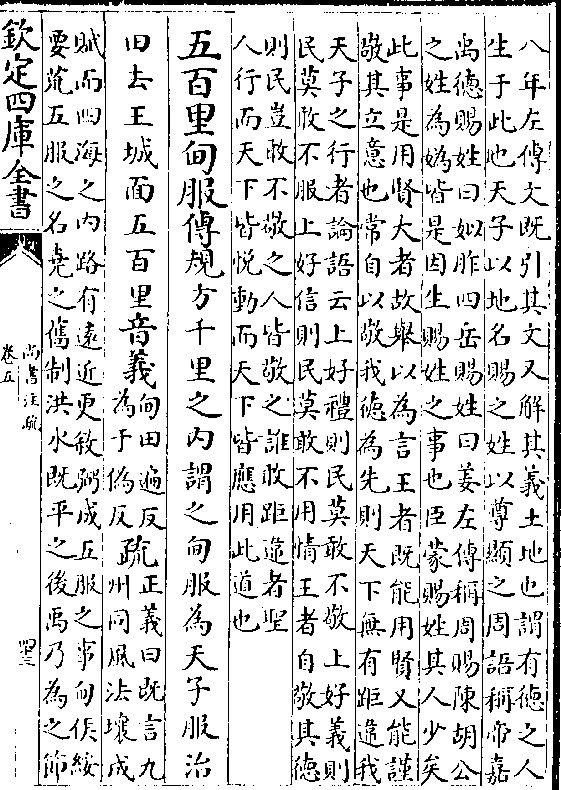 八年左傳文既引其文又解其義土地也謂有德之人
生于此也天子以地名賜之姓以尊顯之周語稱帝嘉
禹德賜姓曰姒胙四岳賜姓曰姜左傳稱周賜陳胡公
之姓為媯皆是因生賜姓之事也臣蒙賜姓其人少矣
此事是用賢大者故舉以為言王者既能用賢又能謹
敬其立意也常自以敬我德為先則天下無有距違我
天子之行者論語云上好禮則民莫敢不敬上好義則
民莫敢不服上好信則民莫敢不用情王者自敬其德
則民豈敢不敬之人皆敬之誰敢距違者聖
人行而天下皆悦動而天下皆應用此道也
五百里甸服傳規方千里之内謂之甸服為天子服治
田去王城面五百里音義甸田遍反為于偽反疏正義曰既言九州同風法壤成
賦而四海之内路有遠近更敘弼成五服之事甸侯綏
要荒五服之名堯之舊制洪水既平之後禹乃為之節
欽定四庫全書
尚書注疏
卷五
四三